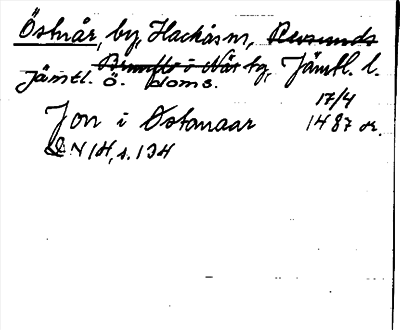 Östnår, by, Hackås sn, Revsunds
Brunflo i När tg, Jämtl. l.
Jämtl. Ö. doms.
17/4
Jon i Ostanaar 1487 or.
DN 14, s. 134